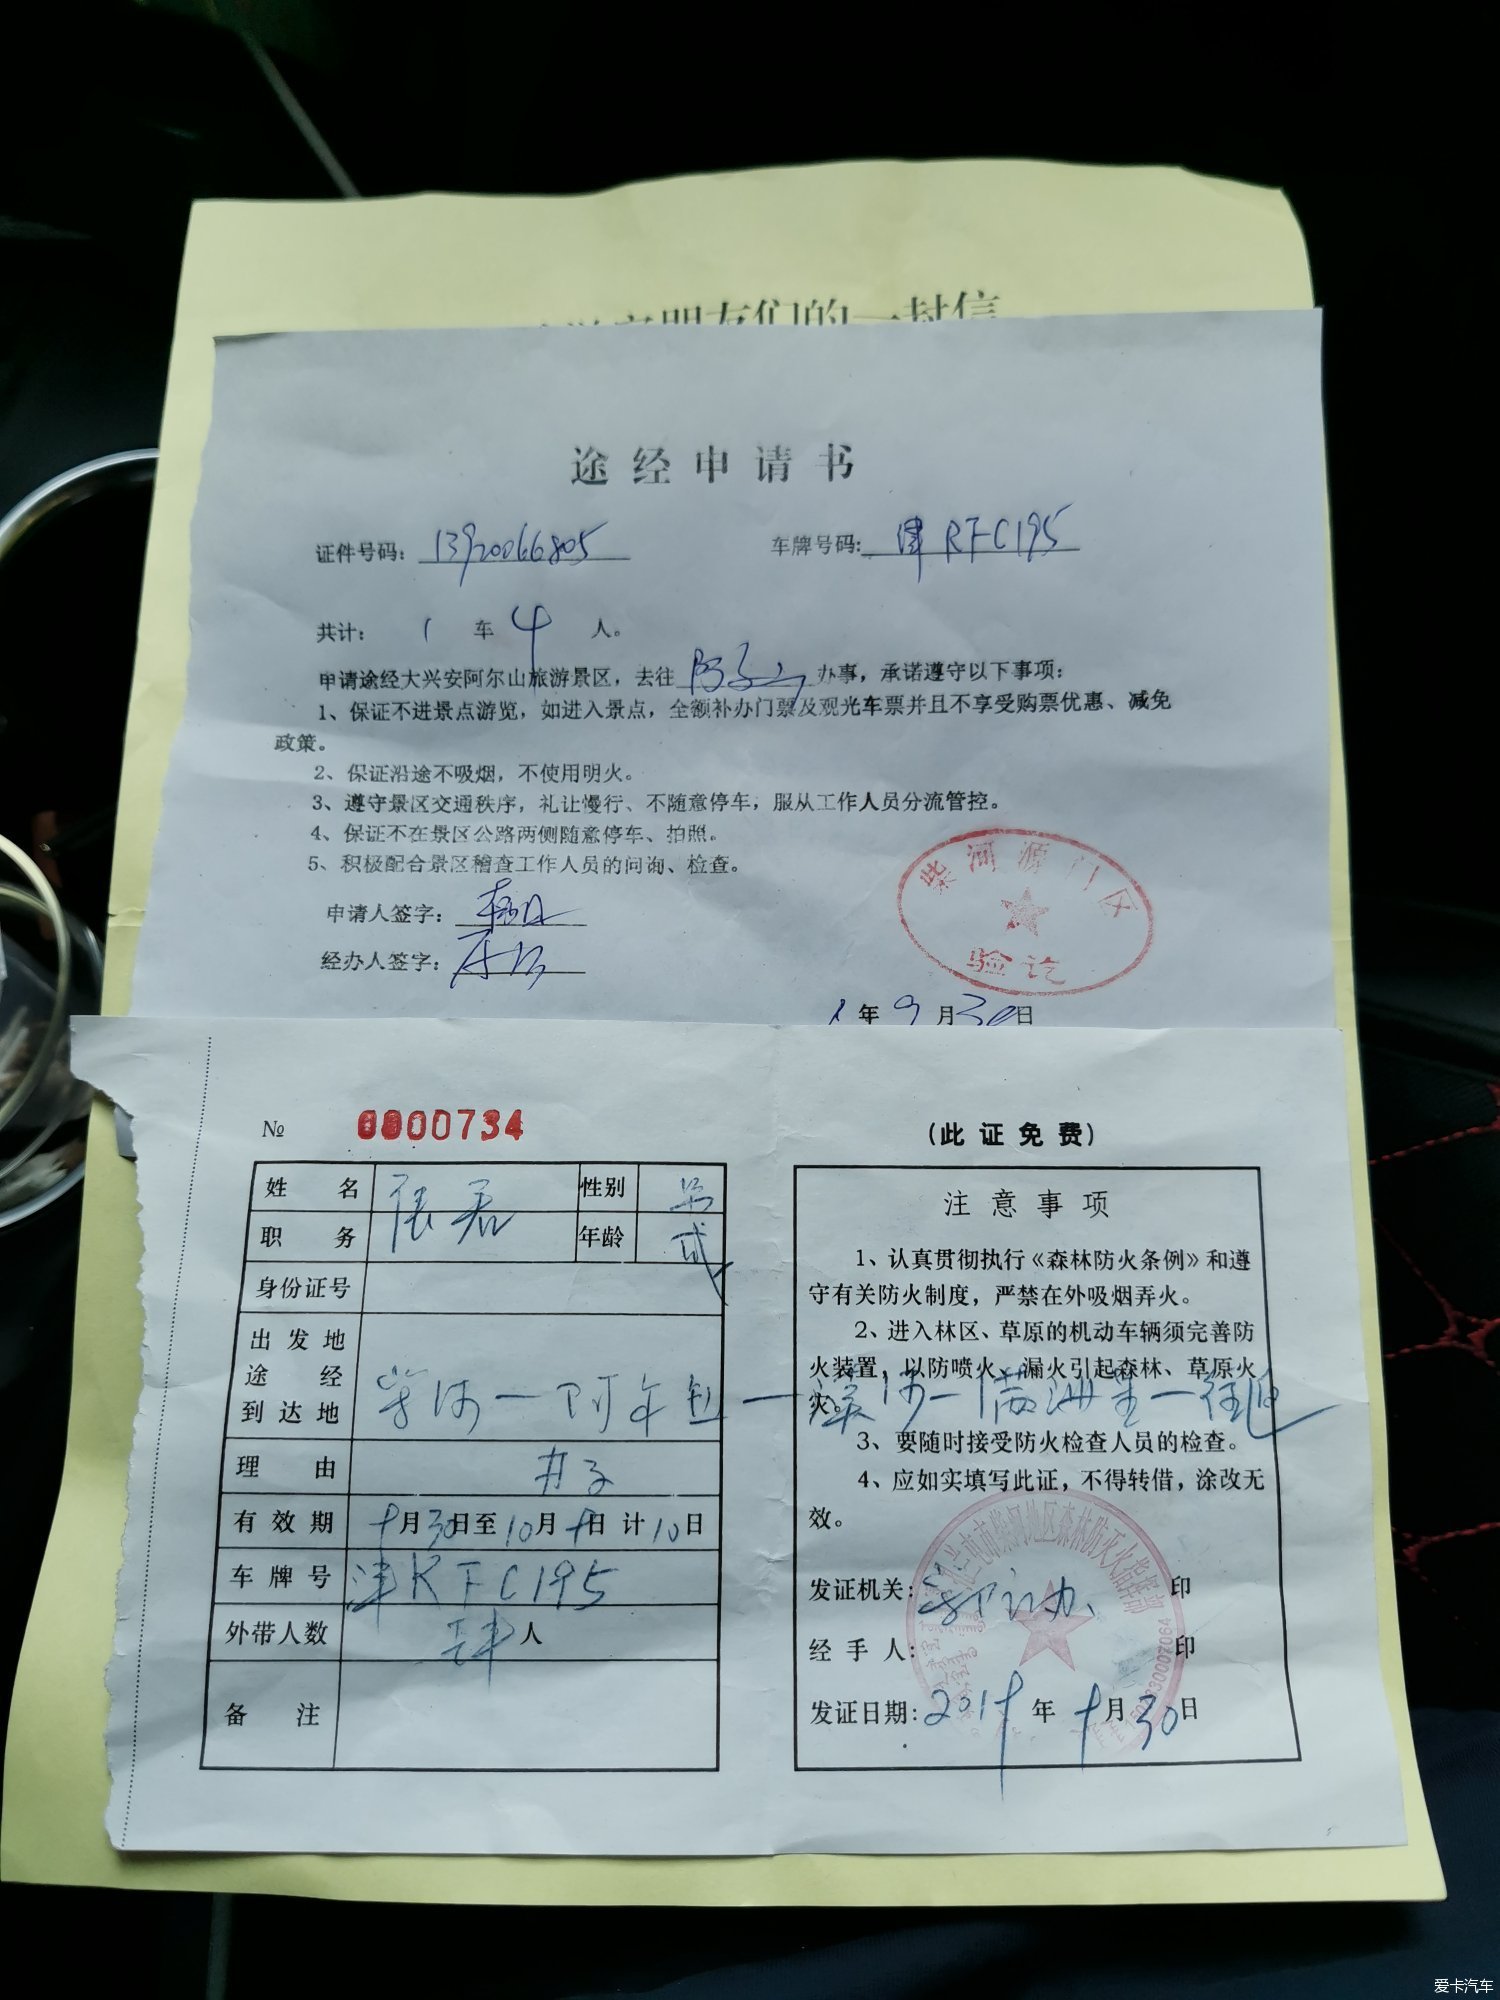 朋友们的一封信
途经申请书
证件号码: 13920066805 车牌号码: 津RFC195
共计: 1 车 4 人。
申请途经大兴安阿尔山旅游景区，去往 办事，承诺遵守以下事项:
1、保证不进景点游览，如进入景点，全额补办门票及观光车票并且不享受购票优惠、减免
政策。
2、保证沿途不吸烟，不使用明火。
3、遵守景区交通秩序，礼让慢行、不随意停车，服从工作人员分流管控。
4、保证不在景区公路两侧随意停车、拍照。
5、积极配合景区稽查工作人员的问询、检查。
柴河源门区
验讫
申请人签字:
经办人签字:
年 9 月 30 日
№ 0000734
姓名 性别 男
职务 年龄
身份证号
出发地
途经
到达地
柴河一阿尔 一 一满洲里一往返
理由
有效期 9月30日至10月9日 计10日
车牌号 津RFC195
外带人数 肆人
备注
(此证免费)
注意事项
1、认真贯彻执行《森林防火条例》和遵
守有关防火制度，严禁在外吸烟弄火。
2、进入林区、草原的机动车辆须完善防
火装置，以防喷火、漏火引起森林、草原火
灾。
3、要随时接受防火检查人员的检查。
4、应如实填写此证，不得转借，涂改无
效。
发证机关: 印
经手人: 印
发证日期: 2019 年 9 月 30 日
爱卡汽车